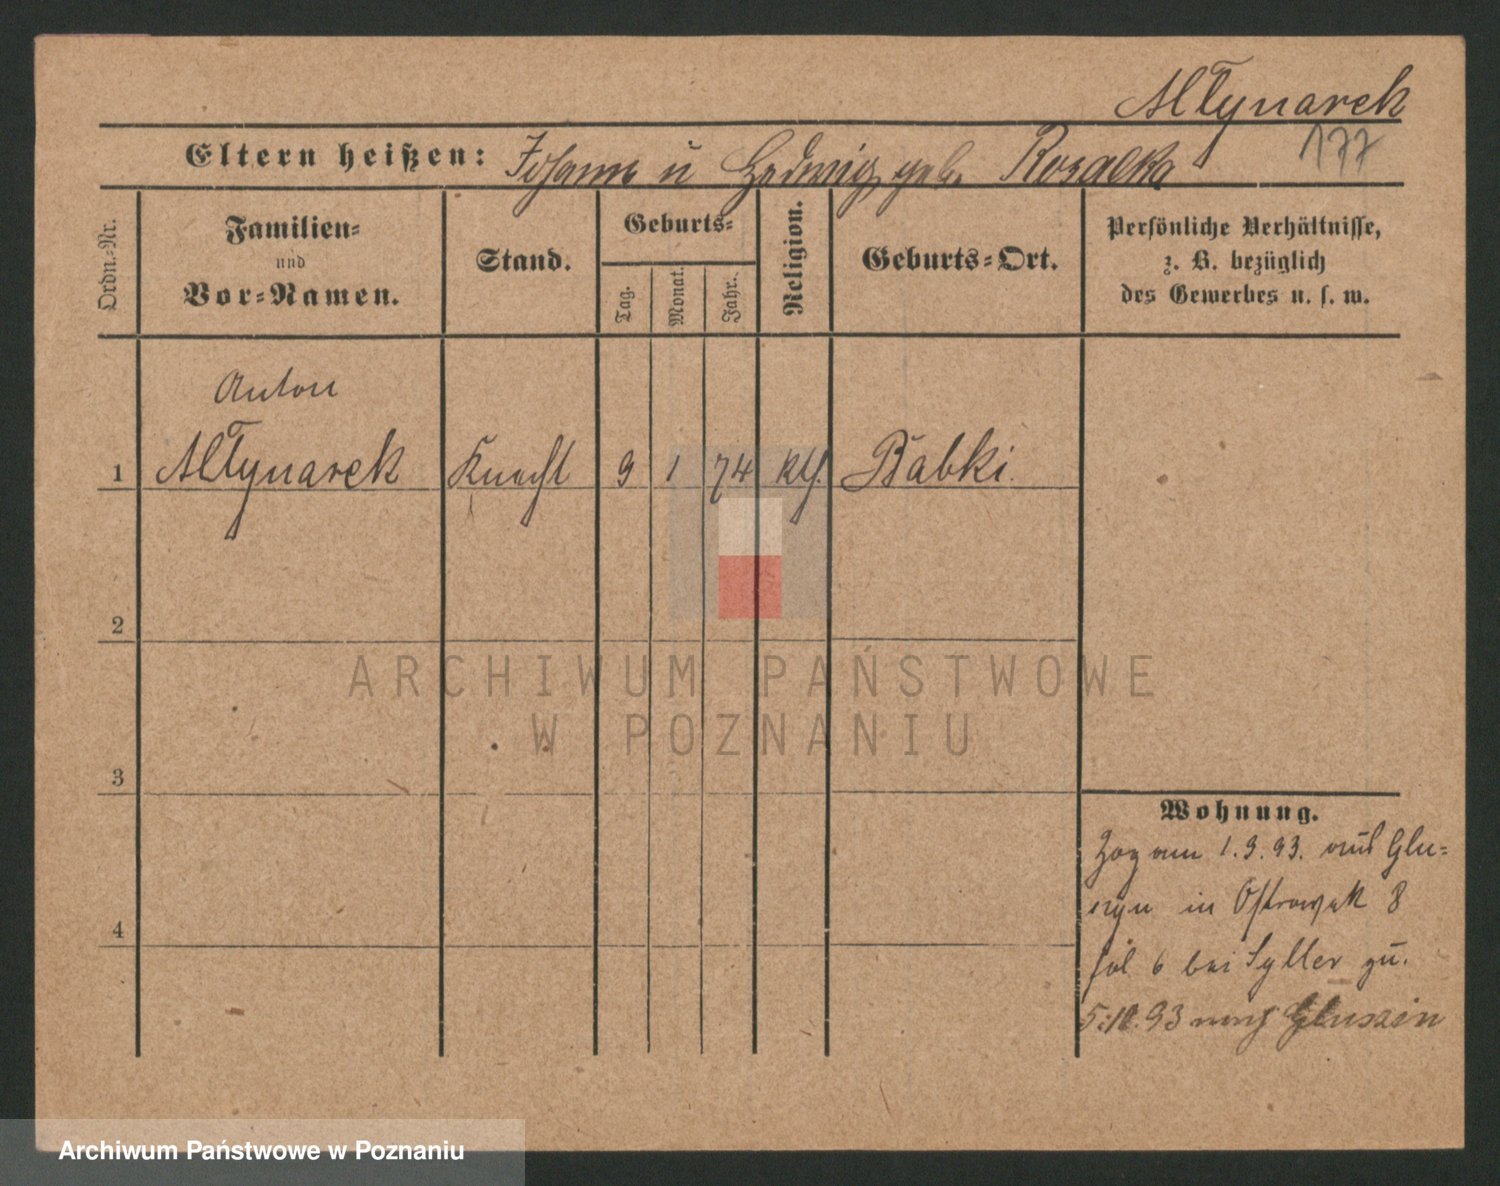 Młynarek
177
Eltern heißen: Johann u Hedwig geb. Rosalka
Ordn.-Nr.
Familien-
und
Vor-Namen.
Stand.
Geburts-
Tag.
Monat.
Jahr.
Religion.
Geburts-Ort.
Persönliche Verhältnisse,
z. B. bezüglich
des Gewerbes u. s. w.
Anton
1 Młynarek Knecht 9 1 74 kth. Babki.
2
3
4
Wohnung.
Zog am 1.3.93. aus Glu-
szyn in Ostrowek 8
bei Syller zu.
5.10.93 nach Gluszin
ARCHIWUM PAŃSTWOWE
W POZNANIU
Archiwum Państwowe w Poznaniu